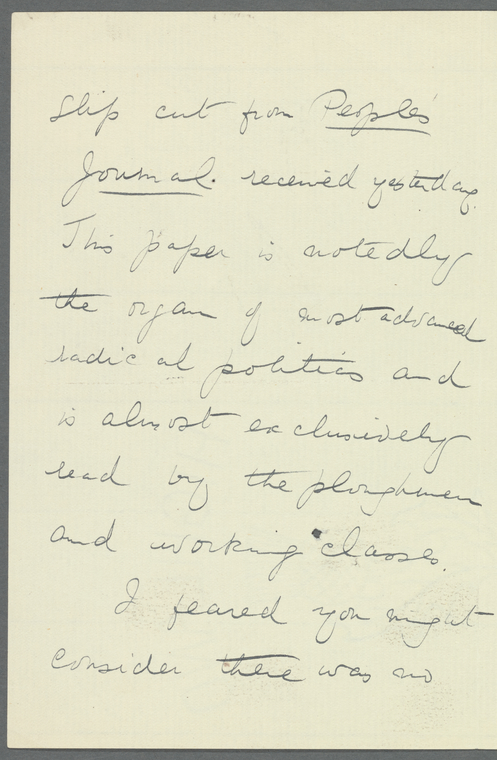 Slip cut from People's
Journal. received yesterday.
This paper is notedly
the organ of most advanced
radical politics and
is almost exclusively
read by the ploughmen
and working classes.
I feared you might
consider there was no